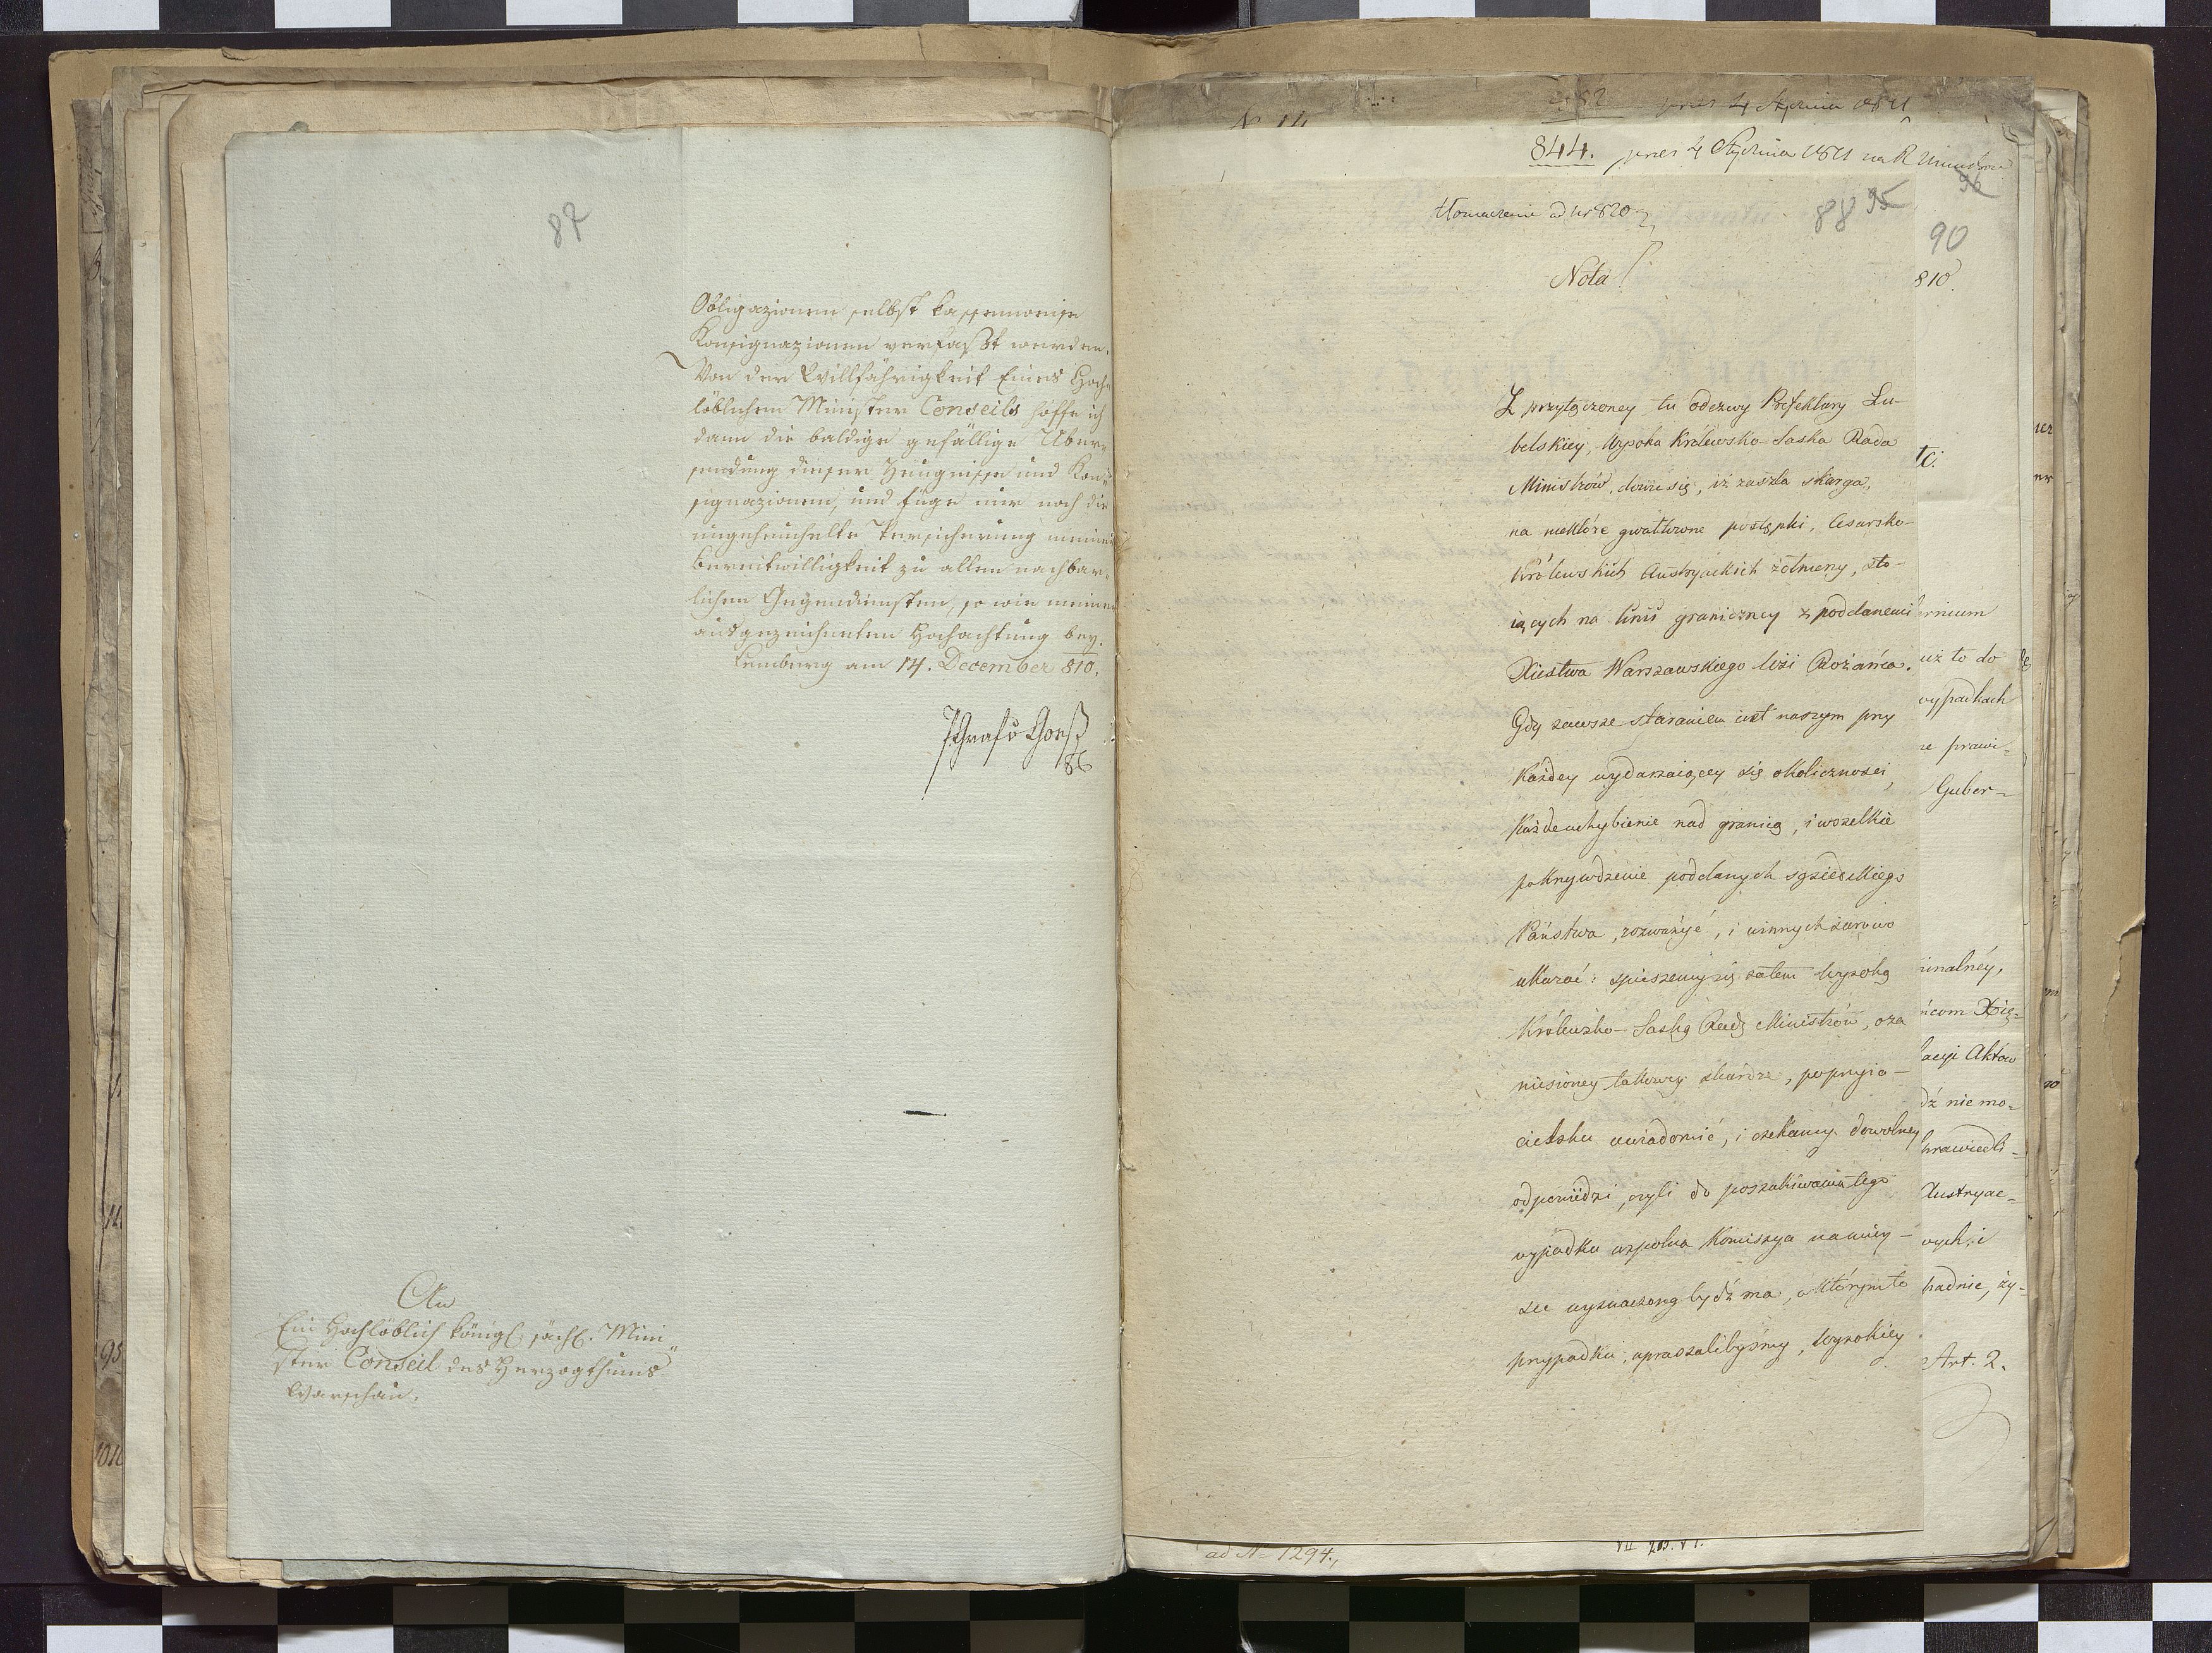 87
Obligazionen selbst kassenweise
Konsignazionen verfaßt werden.
Von der Willfährigkeit Eines Hoch-
löblichen Minister Conseils hoffe ich
dann die baldige gefällige Uber-
sendung dieser Zeugnisse und Kon-
signazionen, und füge nur noch die
ungeheuchelte Versicherung meiner
Bereitwilligkeit zu allen nachbar-
lichen Gegendiensten, so wie meiner
ausgezeichneten Hochachtung bey.
Lemberg am 14. December 810.
Graf v Goëß
86
An
Ein Hochlöblich königl: sächs. Mini-
ster Conseil des Herzogthums
Warschau.
844. pres 4 Stycznia 1811 na R Ministrów
96
Tłomaczenie ad Nr 820
88 95
90
Nota
810.
Z przyłączoney tu odezwy Prefektury Lu-
belskiey, Wysoka Królewsko-Saska Rada
Ministrów, dowie się, iż zaszła skarga,
na niektóre gwałtowne postępki, Cesarsko-
Królewskich Austryackich żołnierzy, sto-
iących na linii graniczney z poddanemi
Xięstwa Warszawskiego wsi Różańca.
Gdy zawsze staraniem iest naszym przy
każdey wydarzaiącey się okoliczności,
każde uchybienie nad granicą, i wszelkie
pokrzywdzenie poddanych sąsiedzkiego
Państwa, rozważyć, i winnych surowo
ukarać: spieszemy się zatem Wysoką
Królewsko-Saską Radę Ministrów, o za
niesioney takowey skardze, po przyia-
cielsku uwiadomić, i czekamy dowolney
odpowiedzi, czyli do poszukiwania tego
wypadku wspólna Komissya na miey-
sce wyznaczoną bydź ma, w którym to
przypadku, upraszalibyśmy, Wysokiey
ernium
uż to do
wypadkach
ne prawi-
Guber-
inalney,
ńcom Xię-
lacyi Aktów
dź nie mo-
prawiedli-
Austryac-
wych, i
padnie, ży-
Art. 2.
ad N= 1294.